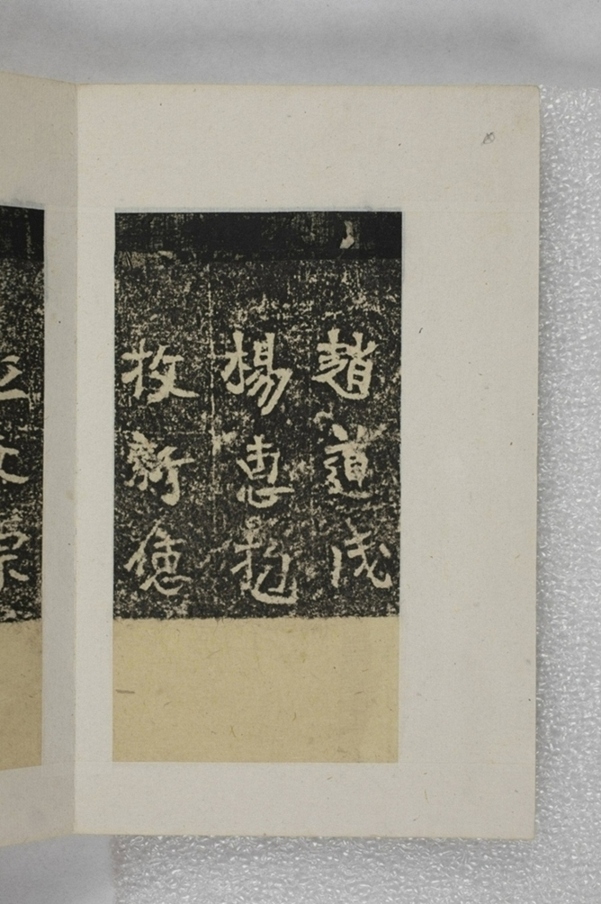 趙道成
楊惠抱
牧新德